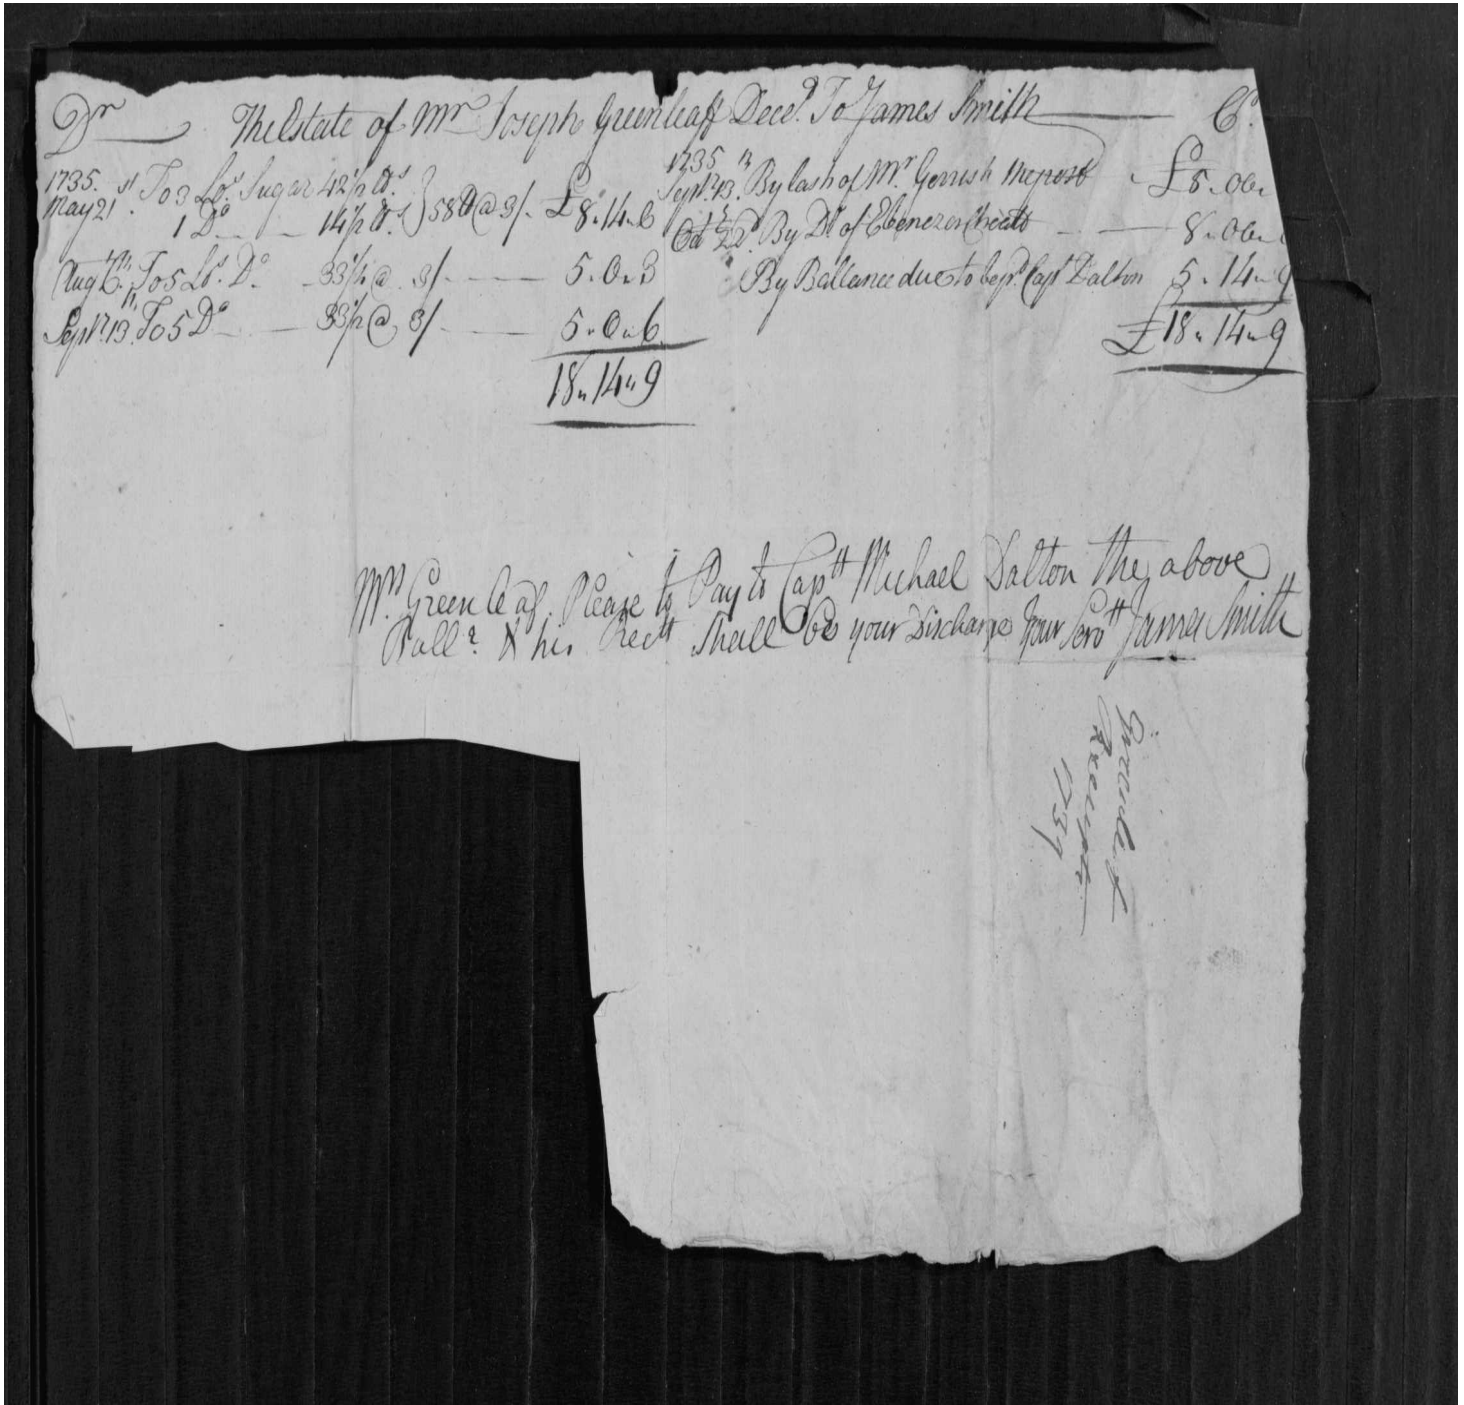 Dr The Estate of Mr Joseph Greenleaff Decd. To James Smith Cr.
1735.
May 21st. To 3 Los. Sugar 42½ lbs.
1 Do 14½ lbs. } 58 lb @ 3/. £8"14"6
Augt 6th. To 5 Los. Do. 33½ @ 3/. 5"0"3
Septr. 13th. To 5 Do 33½ @ 3/ 5"0"6
18"14"9
1735
Septr. 13th. By Cash of Mr. Gerrish £5"0
Octr 22d. By Do. of Ebenezer 8"0
By Ballance due to be pd. Capt Dalton 5"14"9
£18"14"9
Mrs. Greenleaf. Please to Pay to Captt Michael Dalton the above
Balle. & his Rectt Shall be your Discharge Your Servtt James Smith
Greenleaf
Receipts
1737